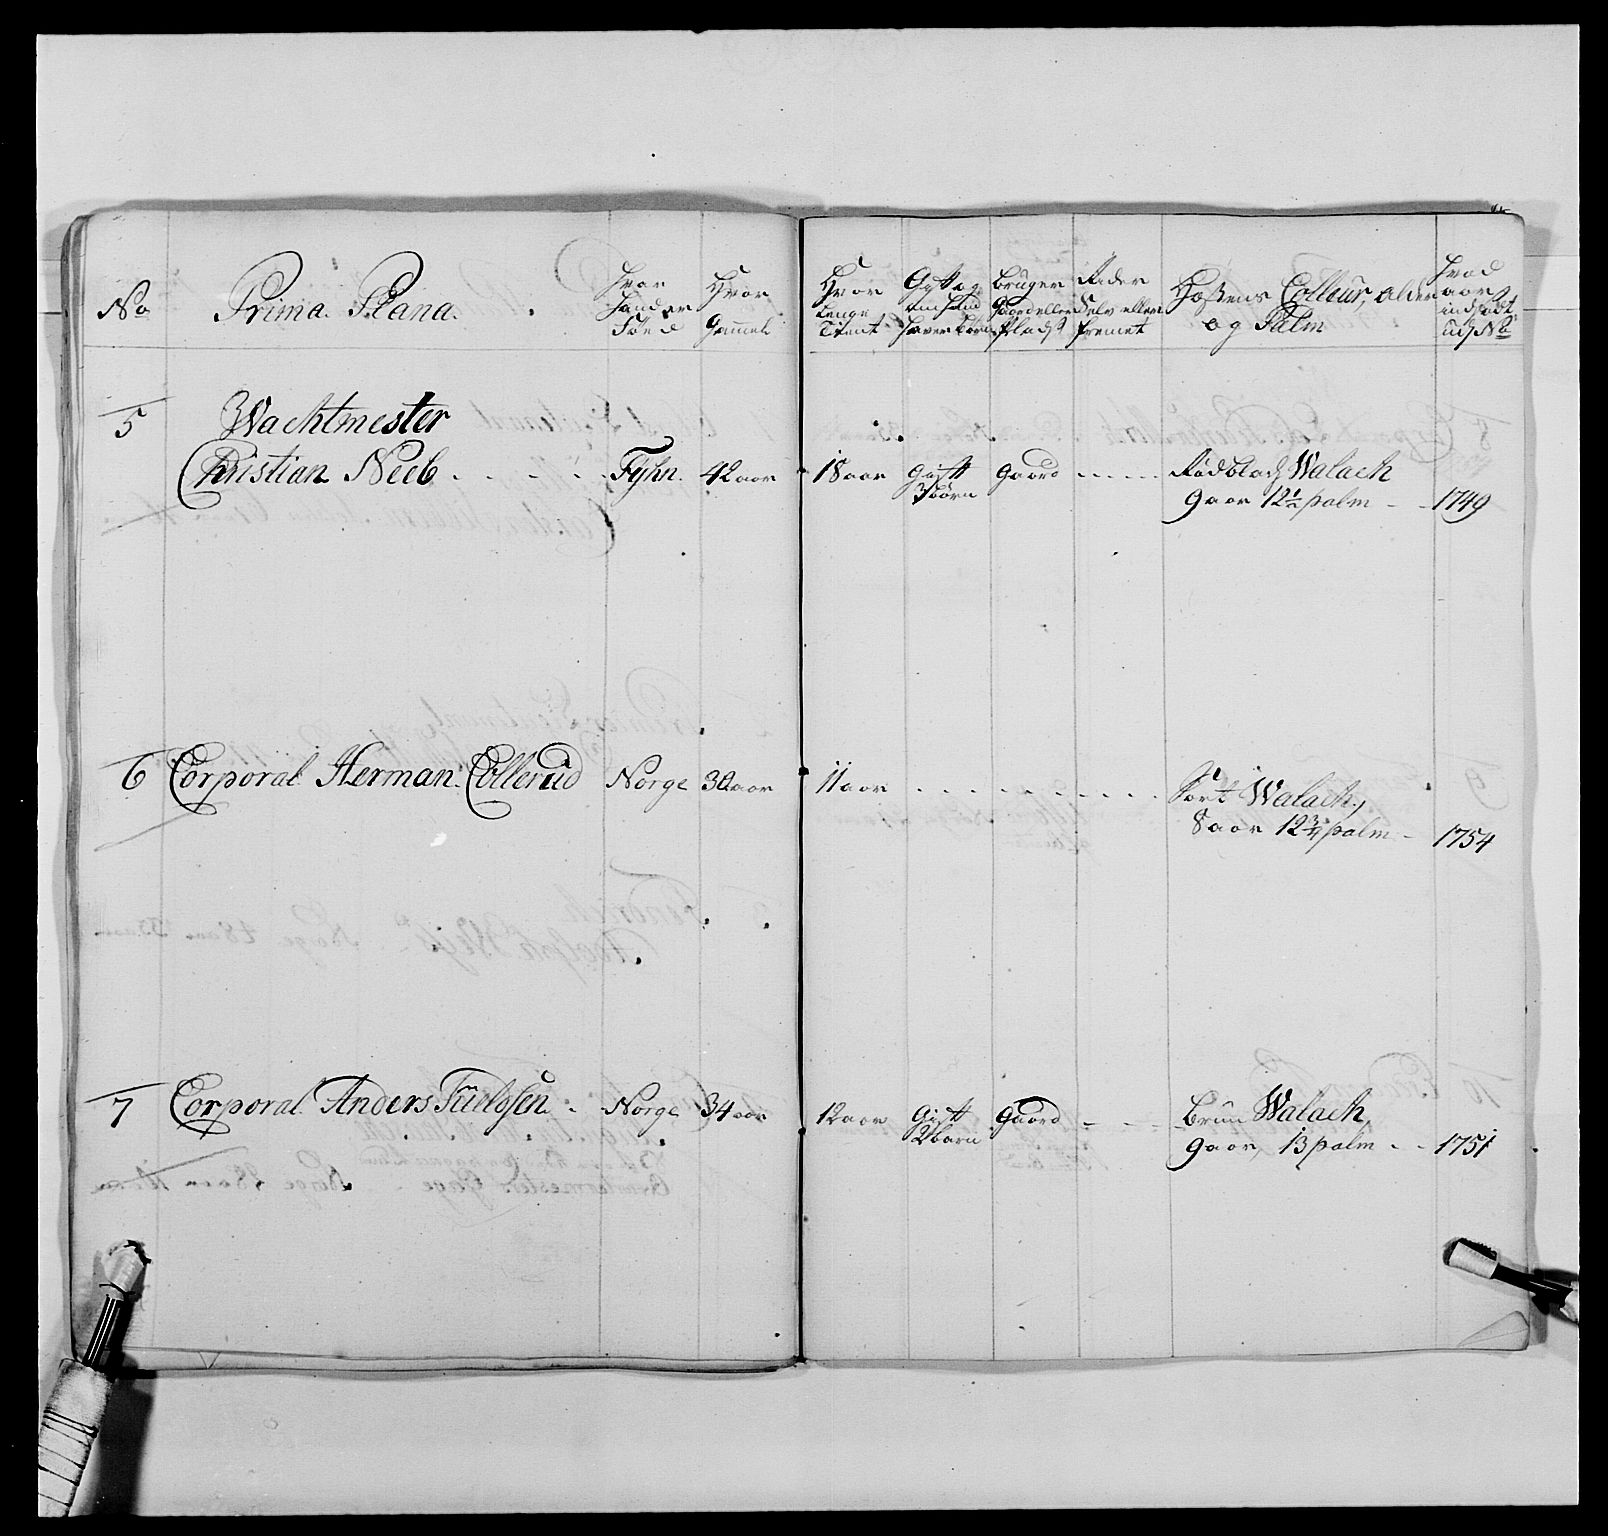 No
Prima Plana.
Hvor
Hand er
Föed
Hvor
Gammel
Hvor
lenge
Tient
Gyft og
om hand
haver börn
Bruger
Gaord eller
Plads
Rider
Selv eller
fremet
Hæstens Colleur, alder
og Palm
Hvad
aar
indskodt
udj No
5
Wachtmester
Christian Neeb
Fyhn.
42 aar
18 aar
Gyft
3 börn
gaard
Rödblads Walach
9 aar 12½ palm
1749
6
Corporal Herman Collerud
Norge
30 aar
11 aar
Sort Walach,
8 aar 12¾ palm
1754
7
Corporal Anders
Norge
34 aar
12 aar
Gift
2 barn
gaard
brun Walach
9 aar, 13 palm
1751